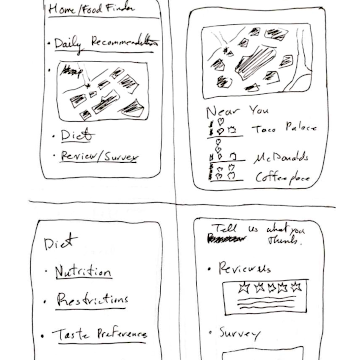 Home/Food Finder
Daily Recommendation
Map
Diet
Review/Survey
Near You
Taco Palace
McDonalds
Coffee place
Diet
Nutrition
Restrictions
Taste Preference
Tell us what you
think.
Review Us
Survey